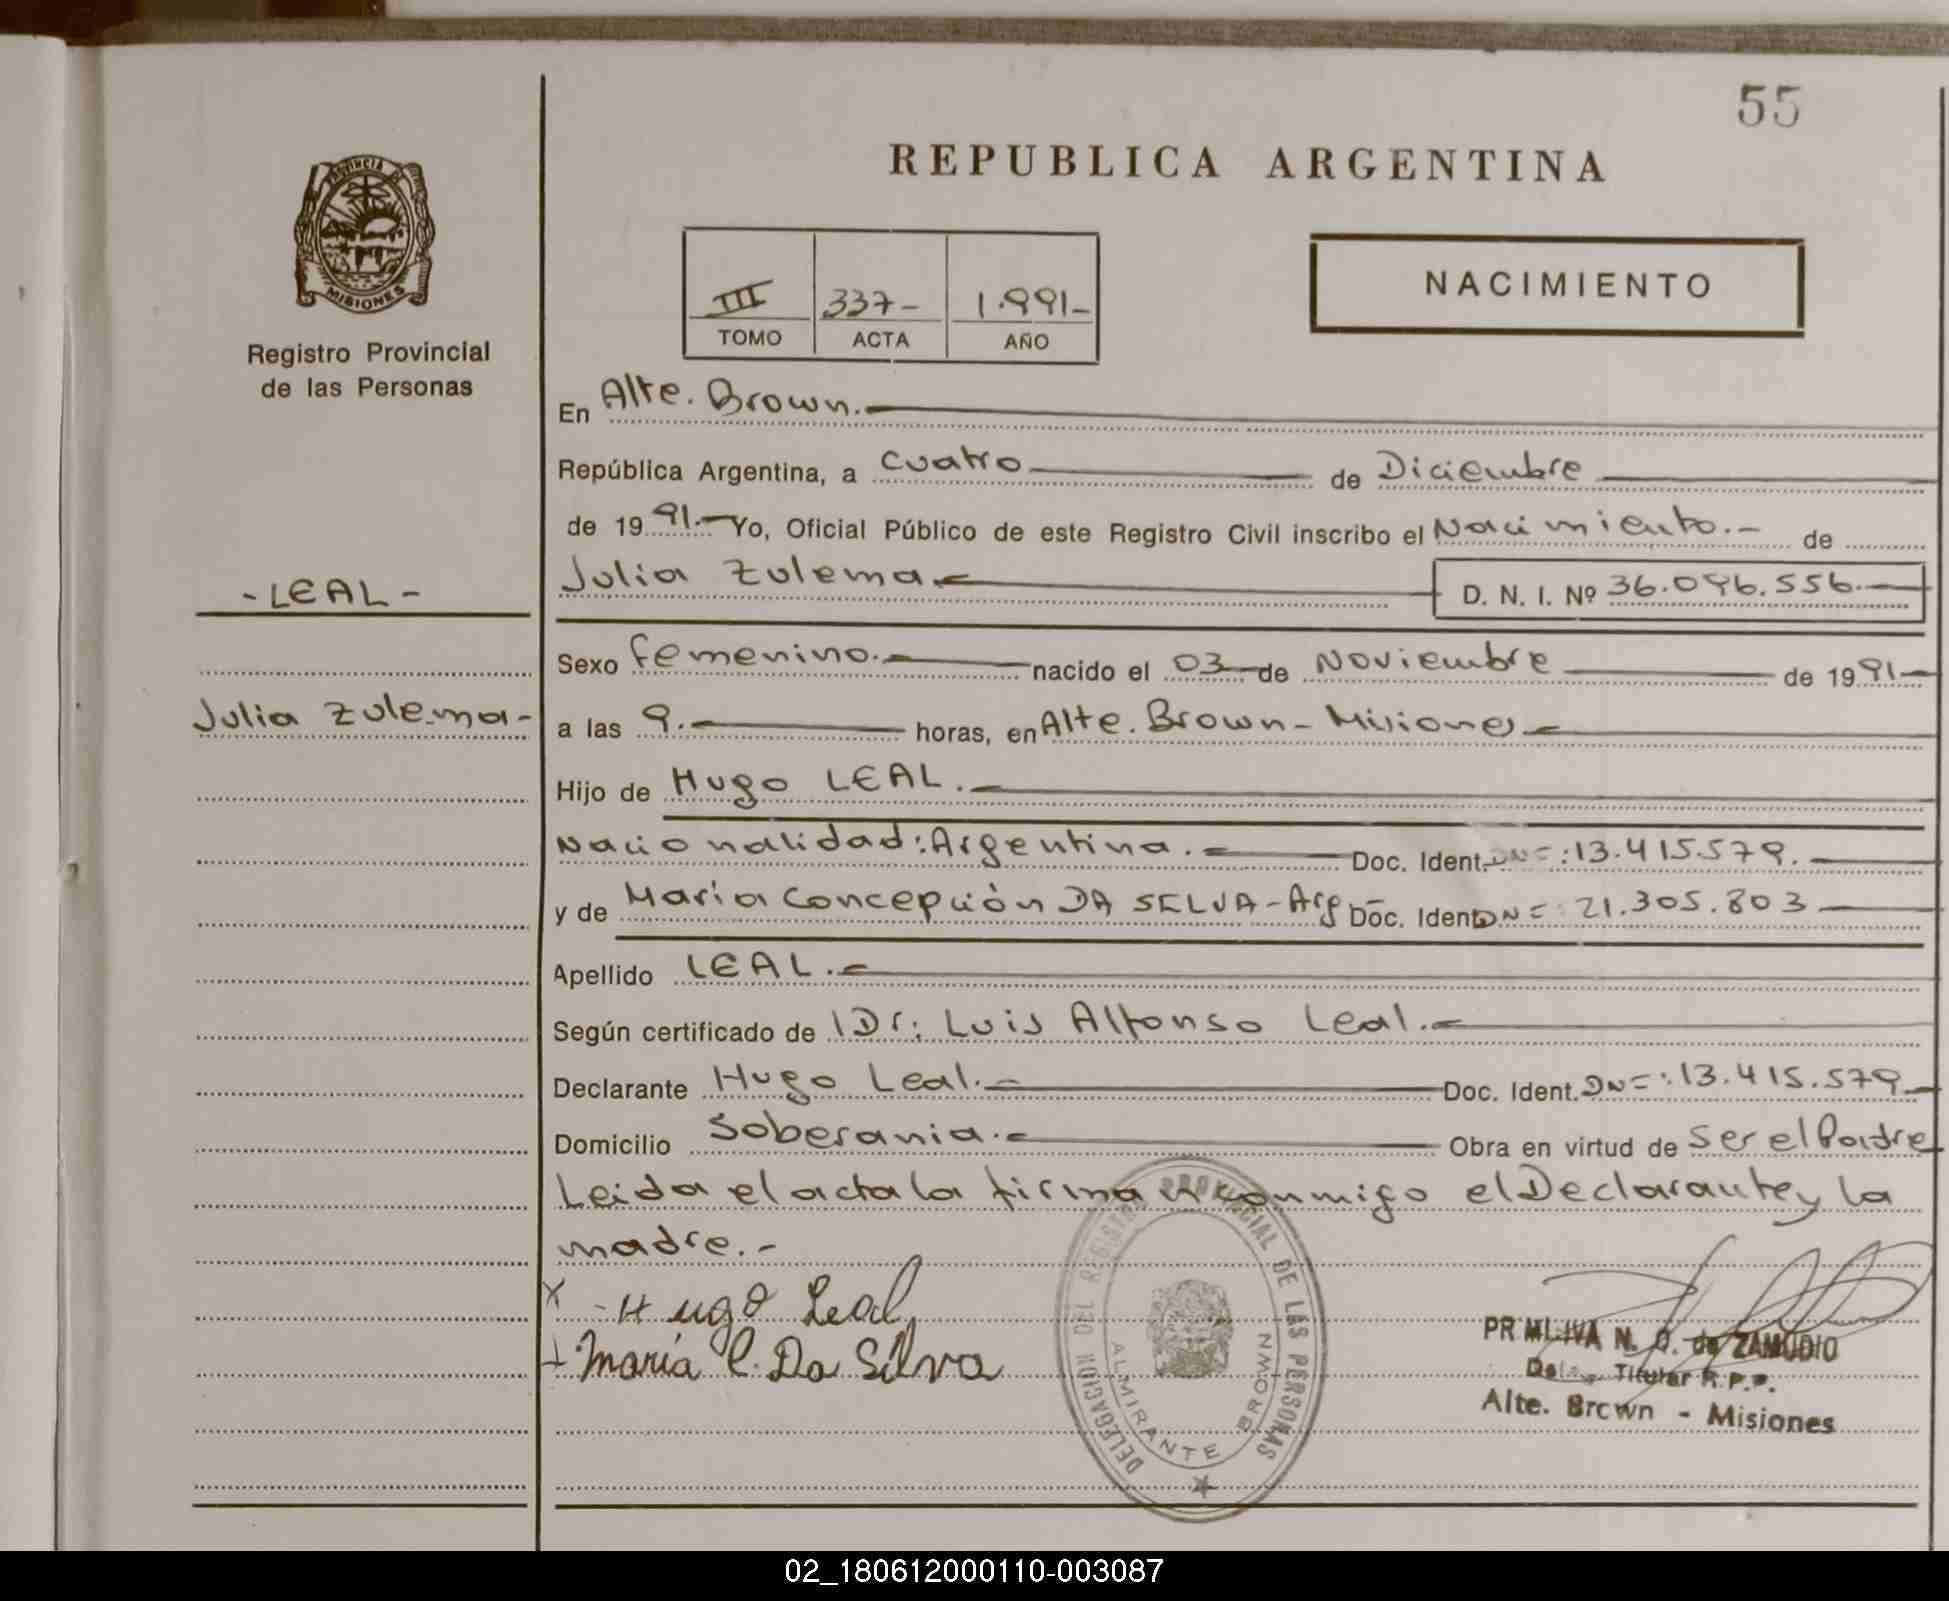 55
REPUBLICA ARGENTINA
PROVINCIA DE
MISIONES
Registro Provincial
de las Personas
III 337- 1.991-
TOMO ACTA AÑO
NACIMIENTO
En Alte. Brown.-
República Argentina, a cuatro de Diciembre
de 1991.- Yo, Oficial Público de este Registro Civil inscribo el Nacimiento.- de
- LEAL -
Julia Zulema.- D. N. I. Nº 36.096.556.-
Sexo femenino.- nacido el 03 de Noviembre de 1991-
Julia Zulema-
a las 9.- horas, en Alte. Brown - Misiones -
Hijo de Hugo LEAL.-
Nacionalidad: Argentina.- Doc. Ident. DNI: 13.415.579.-
y de María Concepción DA SELVA - Arg. Doc. Ident. DNI: 21.305.803
Apellido LEAL.-
Según certificado de Dr: Luis Alfonso Leal.-
Declarante Hugo Leal.- Doc. Ident. DNI: 13.415.579-
Domicilio Soberania.- Obra en virtud de ser el Padre
Leida el acta la firma conmigo el Declarante y la
madre.-
x - Hugo Leal
María C. Da Silva
DELEGACION DEL REGISTRO PROVINCIAL DE LAS PERSONAS
ALMIRANTE BROWN
N. O. de ZAMUDIO
Titular R.P.P.
Alte. Brown - Misiones
02_180612000110-003087